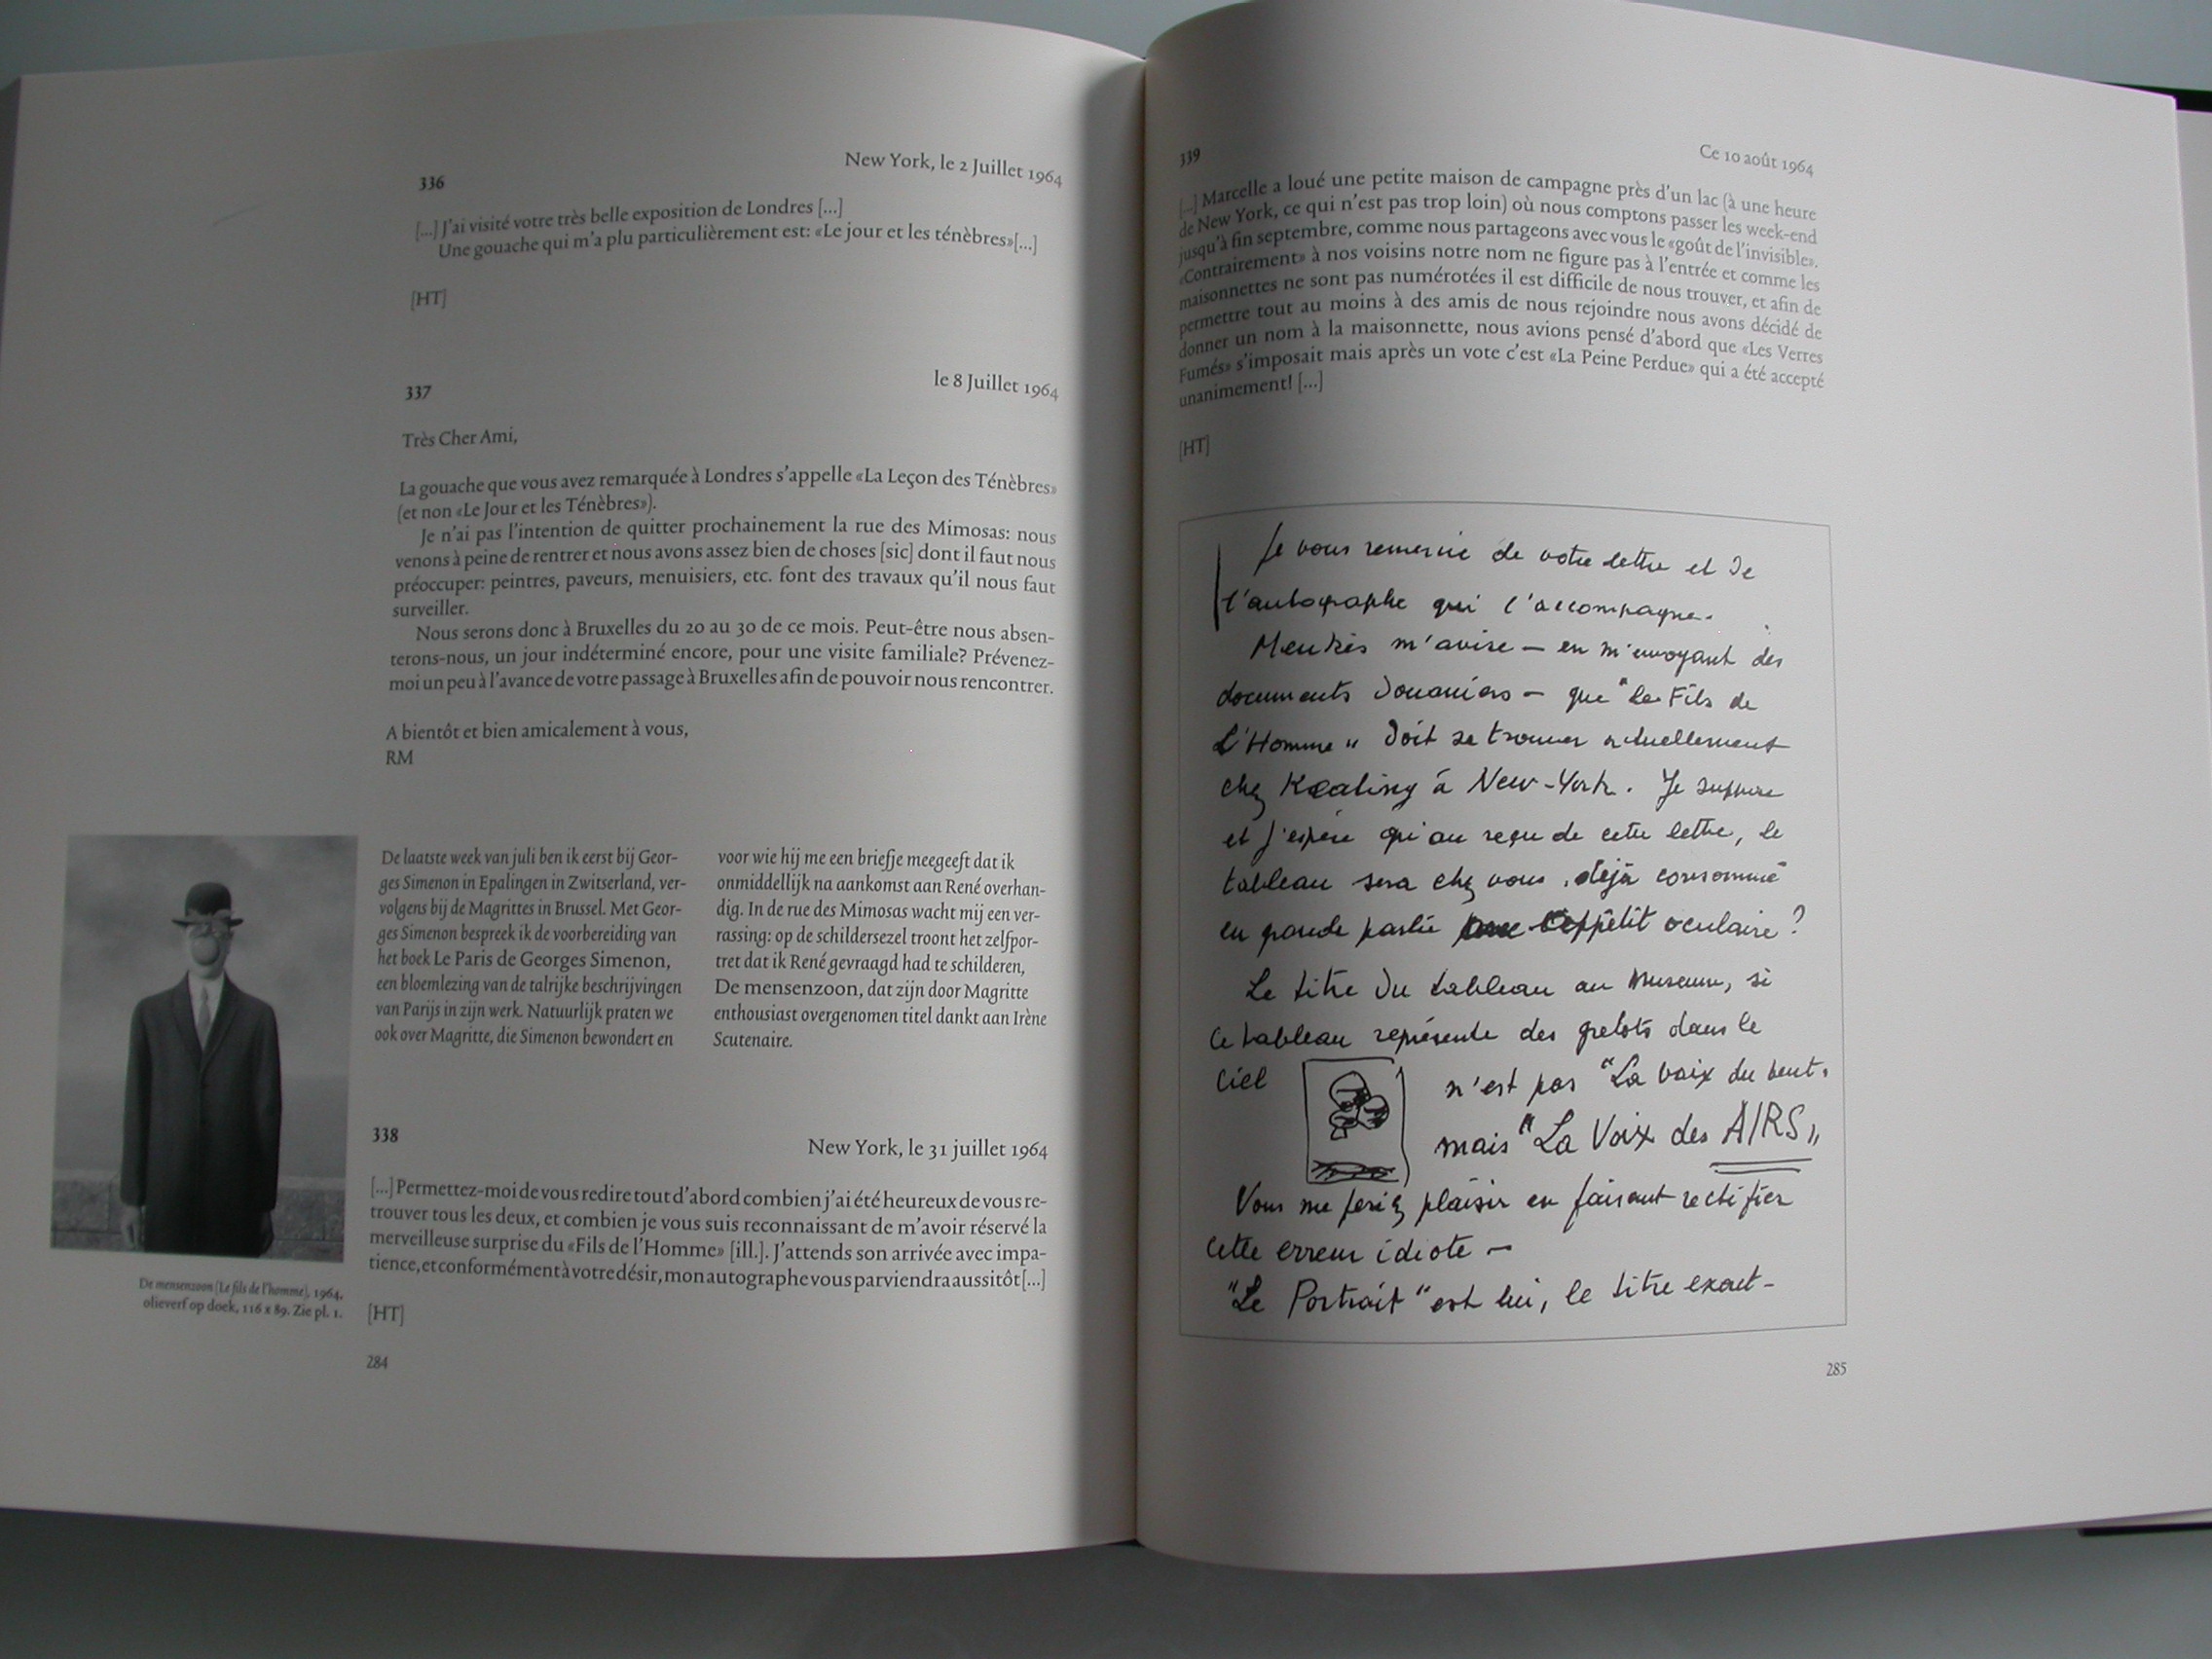 336
New York, le 2 Juillet 1964
[...] J'ai visité votre très belle exposition de Londres [...]
Une gouache qui m'a plu particulièrement est: «Le jour et les ténèbres»[...]
[HT]
337
le 8 Juillet 1964
Très Cher Ami,
La gouache que vous avez remarquée à Londres s'appelle «La Leçon des Ténèbres»
(et non «Le Jour et les Ténèbres»).
Je n'ai pas l'intention de quitter prochainement la rue des Mimosas: nous
venons à peine de rentrer et nous avons assez bien de choses [sic] dont il faut nous
préoccuper: peintres, paveurs, menuisiers, etc. font des travaux qu'il nous faut
surveiller.
Nous serons donc à Bruxelles du 20 au 30 de ce mois. Peut-être nous absen-
terons-nous, un jour indéterminé encore, pour une visite familiale? Prévenez-
moi un peu à l'avance de votre passage à Bruxelles afin de pouvoir nous rencontrer.
A bientôt et bien amicalement à vous,
RM
De laatste week van juli ben ik eerst bij Geor-
ges Simenon in Epalingen in Zwitserland, ver-
volgens bij de Magrittes in Brussel. Met Geor-
ges Simenon bespreek ik de voorbereiding van
het boek Le Paris de Georges Simenon,
een bloemlezing van de talrijke beschrijvingen
van Parijs in zijn werk. Natuurlijk praten we
ook over Magritte, die Simenon bewondert en
voor wie hij me een briefje meegeeft dat ik
onmiddellijk na aankomst aan René overhan-
dig. In de rue des Mimosas wacht mij een ver-
rassing: op de schildersezel troont het zelfpor-
tret dat ik René gevraagd had te schilderen,
De mensenzoon, dat zijn door Magritte
enthousiast overgenomen titel dankt aan Irène
Scutenaire.
De mensenzoon (Le fils de l'homme), 1964,
olieverf op doek, 116 x 89. Zie pl. 1.
338
New York, le 31 juillet 1964
[...] Permettez-moi de vous redire tout d'abord combien j'ai été heureux de vous re-
trouver tous les deux, et combien je vous suis reconnaissant de m'avoir réservé la
merveilleuse surprise du «Fils de l'Homme» [ill.]. J'attends son arrivée avec impa-
tience, et conformément à votre désir, mon autographe vous parviendra aussitôt [...]
[HT]
284
339
Ce 10 août 1964
[...] Marcelle a loué une petite maison de campagne près d'un lac (à une heure
de New York, ce qui n'est pas trop loin) où nous comptons passer les week-end
jusqu'à fin septembre, comme nous partageons avec vous le «goût de l'invisible».
«Contrairement» à nos voisins notre nom ne figure pas à l'entrée et comme les
maisonnettes ne sont pas numérotées il est difficile de nous trouver, et afin de
permettre tout au moins à des amis de nous rejoindre nous avons décidé de
donner un nom à la maisonnette, nous avions pensé d'abord que «Les Verres
Fumés» s'imposait mais après un vote c'est «La Peine Perdue» qui a été accepté
unanimement! [...]
[HT]
Je vous remercie de votre lettre et de
l'autographe qui l'accompagne.
m'avise – en m'envoyant des
documents douaniers – que "Le Fils de
L'Homme" doit se trouver actuellement
chez Keating à New-York. Je suppose
et j'espère qu'au reçu de cette lettre, le
tableau sera chez vous, déjà consommé
en grande partie appétit oculaire?
Le titre du tableau au Museum, si
ce tableau représente des grelots dans le
ciel n'est pas "La voix du vent"
mais "La Voix des AIRS"
Vous me feriez plaisir en faisant rectifier
cette erreur idiote –
"Le Portrait" est lui, le titre exact –
285